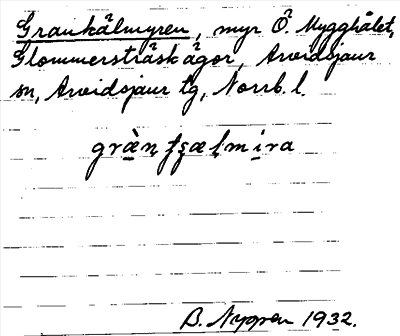 Grankälmyren, myr Ö. Mygghålet,
Glommersträsk ägor, Arvidsjaur
sn, Arvidsjaur tg, Norrb. l.
græ̀n ʃʂæl̥mı̣ra
B. Nygren 1932.